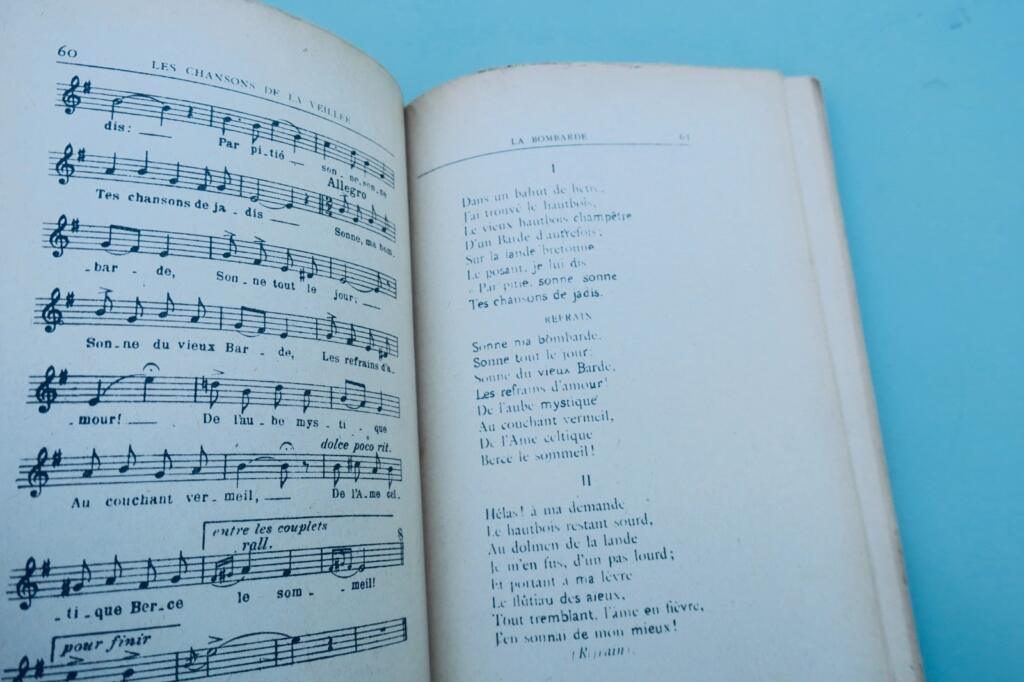 60
LES CHANSONS DE LA VEILLÉE
dis: ___
Par pi.tié ___ son_ne,son_ne
Allegro
Tes chansons de ja_dis ___ Sonne, ma bom_
_bar_de, Son_ne tout le jour; ___
Son_ne du vieux Bar_de, Les refrains d'a_
_mour! ___ De l'au_be mys_ti_que
dolce poco rit.
Au couchant ver_meil, ___ De l'Ame cel_
entre les couplets
rall.
8
_ti_que Ber_ce le som___meil!
pour finir
LA BOMBARDE 61
I
Dans un bahut de hêtre,
J'ai trouvé le hautbois,
Le vieux hautbois champêtre
D'un Barde d'autrefois;
Sur la lande bretonne
Le posant, je lui dis
« Par pitié, sonne sonne
Tes chansons de jadis.
REFRAIN
Sonne ma bombarde.
Sonne tout le jour;
Sonne du vieux Barde,
Les refrains d'amour!
De l'aube mystique
Au couchant vermeil,
De l'Ame celtique
Berce le sommeil!
II
Hélas! à ma demande
Le hautbois restant sourd,
Au dolmen de la lande
Je m'en fus, d'un pas lourd;
Et portant à ma lèvre
Le flûtiau des aïeux,
Tout tremblant, l'âme en fièvre,
J'en sonnai de mon mieux!
(Refrain).